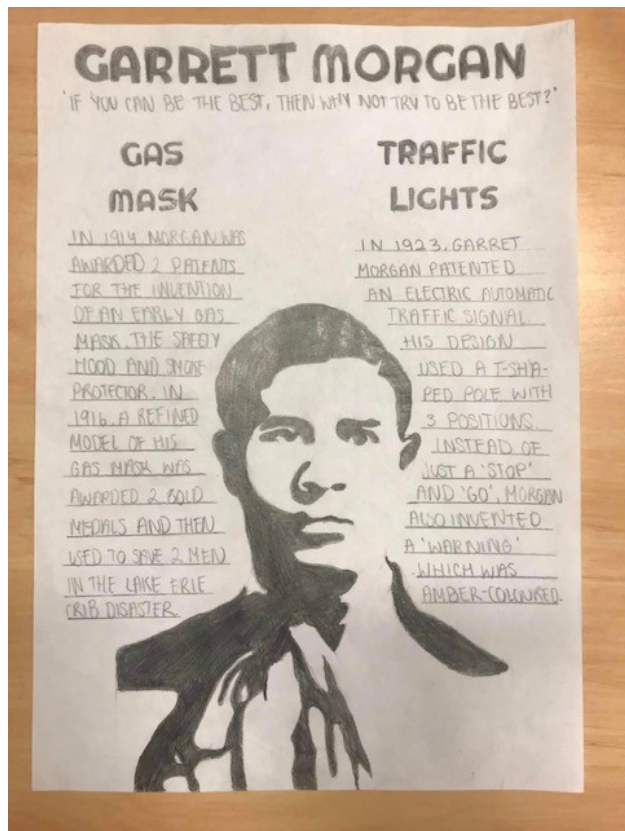 GARRETT MORGAN
'IF YOU CAN BE THE BEST, THEN WHY NOT TRY TO BE THE BEST?'
GAS
MASK
IN 1914 MORGAN WAS
AWARDED 2 PATENTS
FOR THE INVENTION
OF AN EARLY GAS
MASK, THE SAFETY
HOOD AND SMOKE
PROTECTOR. IN
1916, A REFINED
MODEL OF HIS
GAS MASK WAS
AWARDED 2 GOLD
MEDALS AND THEN
USED TO SAVE 2 MEN
IN THE LAKE ERIE
CRIB DISASTER.
TRAFFIC
LIGHTS
IN 1923, GARRET
MORGAN PATENTED
AN ELECTRIC AUTOMATIC
TRAFFIC SIGNAL.
HIS DESIGN
USED A T-SHA-
PED POLE WITH
3 POSITIONS.
INSTEAD OF
JUST A 'STOP'
AND 'GO', MORGAN
ALSO INVENTED
A 'WARNING'
WHICH WAS
AMBER-COLOURED.